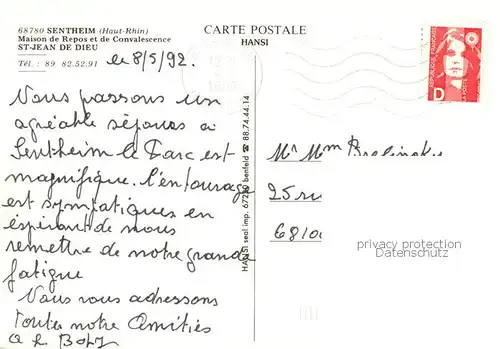 68780 SENTHEIM (Haut-Rhin)
Maison de Repos et de Convalescence
ST-JEAN DE DIEU
Tél.: 89 82.52.91
CARTE POSTALE
HANSI
le 8/5/92.
Nous passons un
agréable séjours a
Sentheim le Parc est
magnifique. l'entourage
est sympatiques en
espirant de nous
remettre de notre grande
fatigue
Nous vous adressons
toutes notre Amitiés
HANSI seal imp. 67230 benfeld ☎ 88.74.44.14
D
Mr Mme
25 ru
6810
privacy protection
Datenschutz